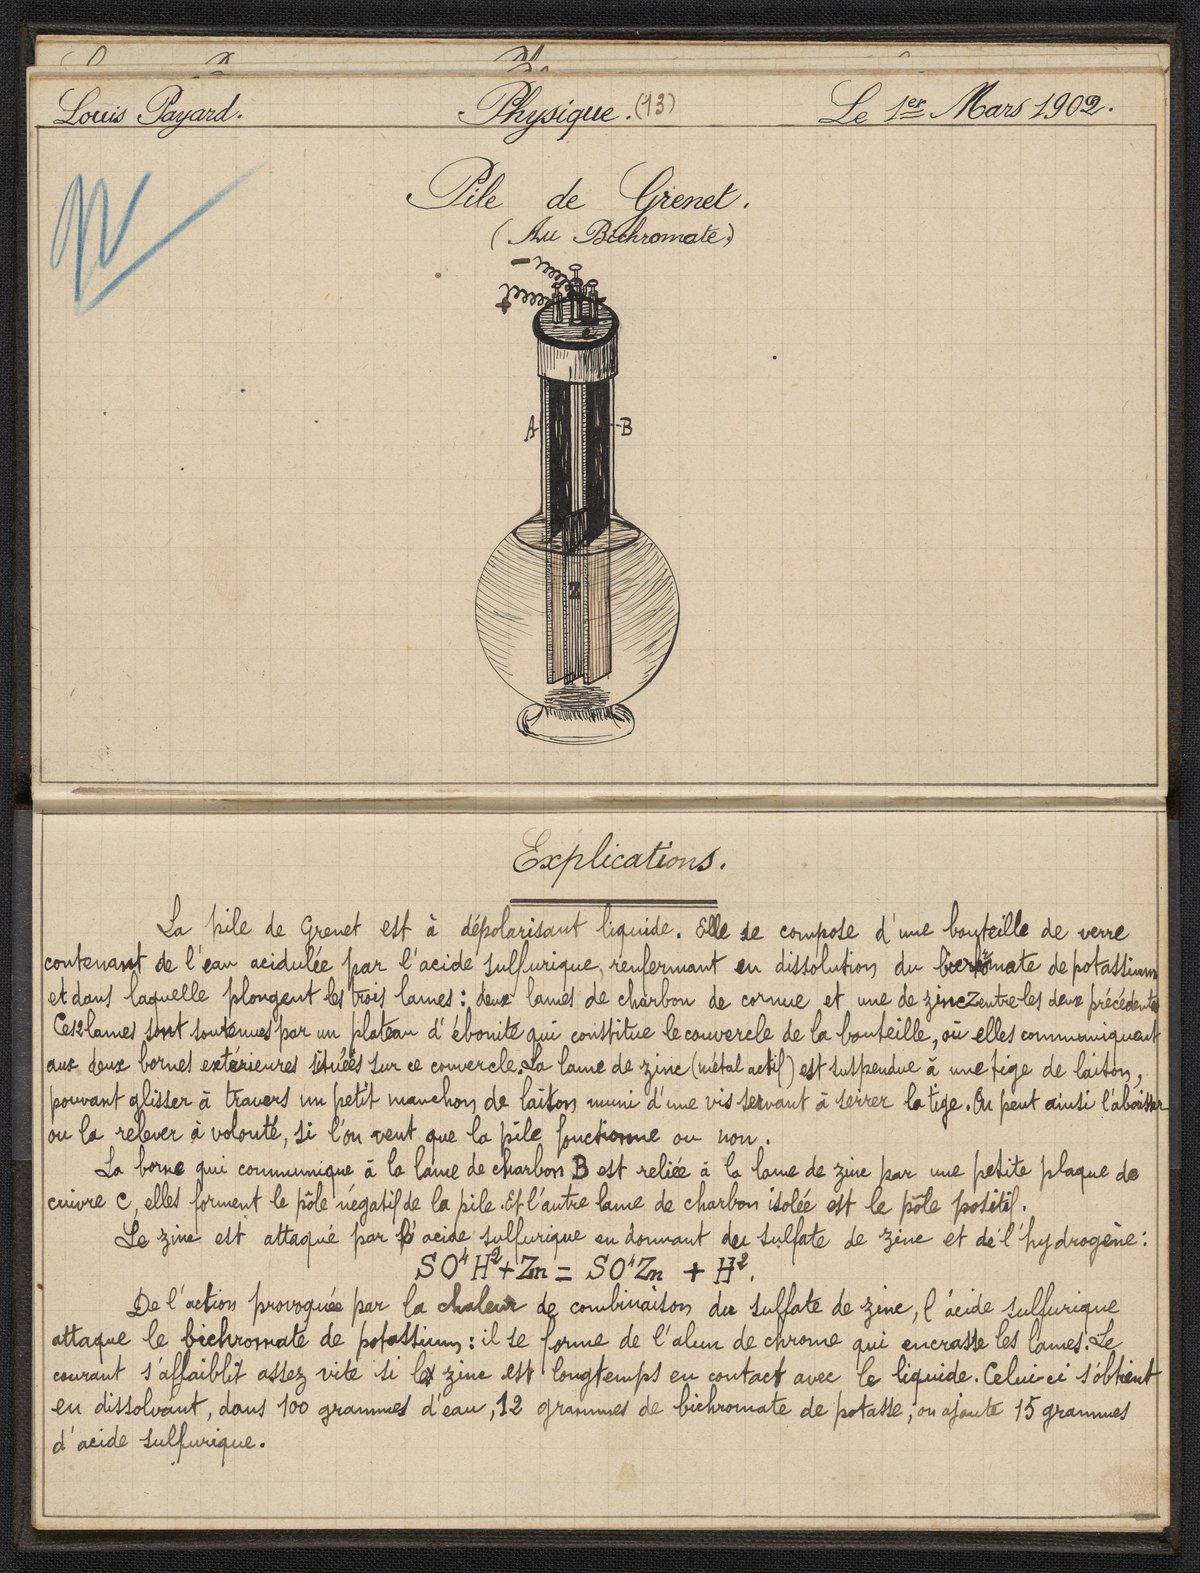 Louis Payard. Physique. (13) Le 1er Mars 1902.
Pile de Grenet.
(Au Bichromate.)
-
+
A B
Z
Explications.
La pile de Grenet est à dépolarisant liquide. Elle se compose d'une bouteille de verre
contenant de l'eau acidulée par l'acide sulfurique, renfermant en dissolution du bichromate de potassium
et dans laquelle plongent les trois lames : deux lames de charbon de cornue et une de zinc Z entre les deux précédentes
Ces 2 lames sont soutenues par un plateau d'ébonite qui constitue le couvercle de la bouteille, où elles communiquent
aux deux bornes extérieures situées sur ce couvercle. La lame de zinc (métal actif) est suspendue à une tige de laiton,
pouvant glisser à travers un petit manchon de laiton muni d'une vis servant à serrer la tige. On peut ainsi l'abaisser
ou la relever à volonté, si l'on veut que la pile fonctionne ou non.
La borne qui communique à la lame de charbon B est reliée à la lame de zinc par une petite plaque de
cuivre C, elles forment le pôle négatif de la pile. Et l'autre lame de charbon isolée est le pôle positif.
Le zinc est attaqué par l'acide sulfurique en donnant du sulfate de zinc et de l'hydrogène :
SO⁴H² + Zn = SO⁴Zn + H².
De l'action provoquée par la chaleur de combinaison du sulfate de zinc, l'acide sulfurique
attaque le bichromate de potassium : il se forme de l'alun de chrome qui encrasse les lames. Le
courant s'affaiblit assez vite si le zinc est longtemps en contact avec le liquide. Celui-ci s'obtient
en dissolvant, dans 100 grammes d'eau, 12 grammes de bichromate de potasse ; on ajoute 15 grammes
d'acide sulfurique.